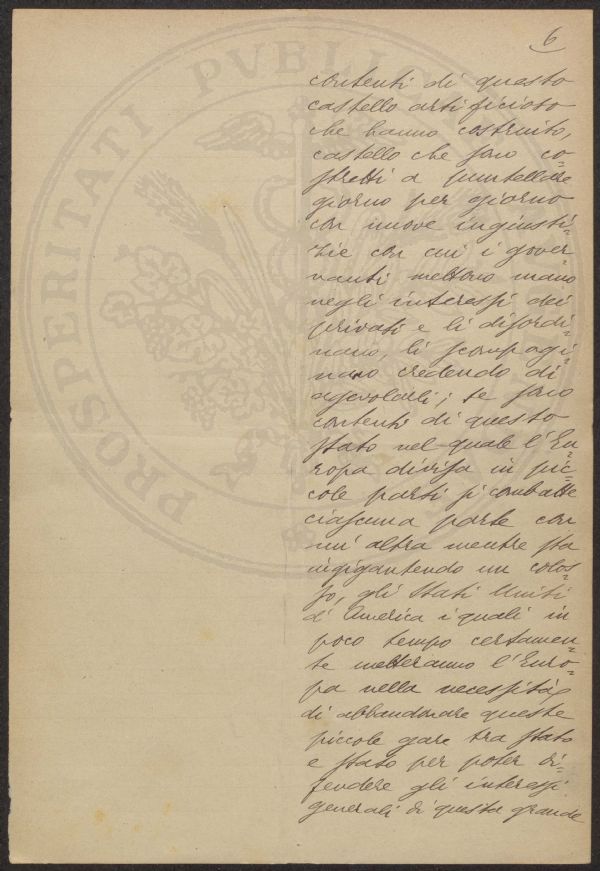 6
PROSPERITATI PVBLI
contenti di questo
castello artificioso
che hanno costruito,
castello che sono co=
stretti a puntellare
giorno per giorno
con nuove ingiusti=
zie con cui i gover=
nanti mettono mano
negli interessi dei
privati e li disordi=
nano, li scompagi=
nano credendo di
agevolarli; se sono
contenti di questo
stato nel quale l'Eu=
ropa divisa in pic=
cole parti si combatte
ciascuna parte con
un' altra mentre sta
ingigantendo un colos=
so, gli Stati Uniti
d'America i quali in
poco tempo certamen=
te metteranno l'Euro=
pa nella necessità
di abbandonare queste
piccole gare tra stato
e stato per poter di=
fendere gli interessi
generali di questa grande